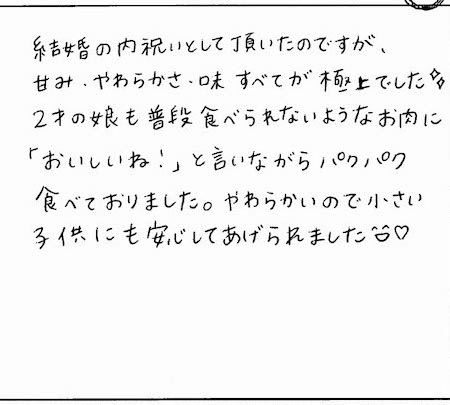 結婚の内祝いとして頂いたのですが、
甘み・やわらかさ・味すべてが極上でした✨
2才の娘も普段食べられないようなお肉に
「おいしいね!」と言いながらパクパク
食べておりました。やわらかいので小さい
子供にも安心してあげられました😊♡